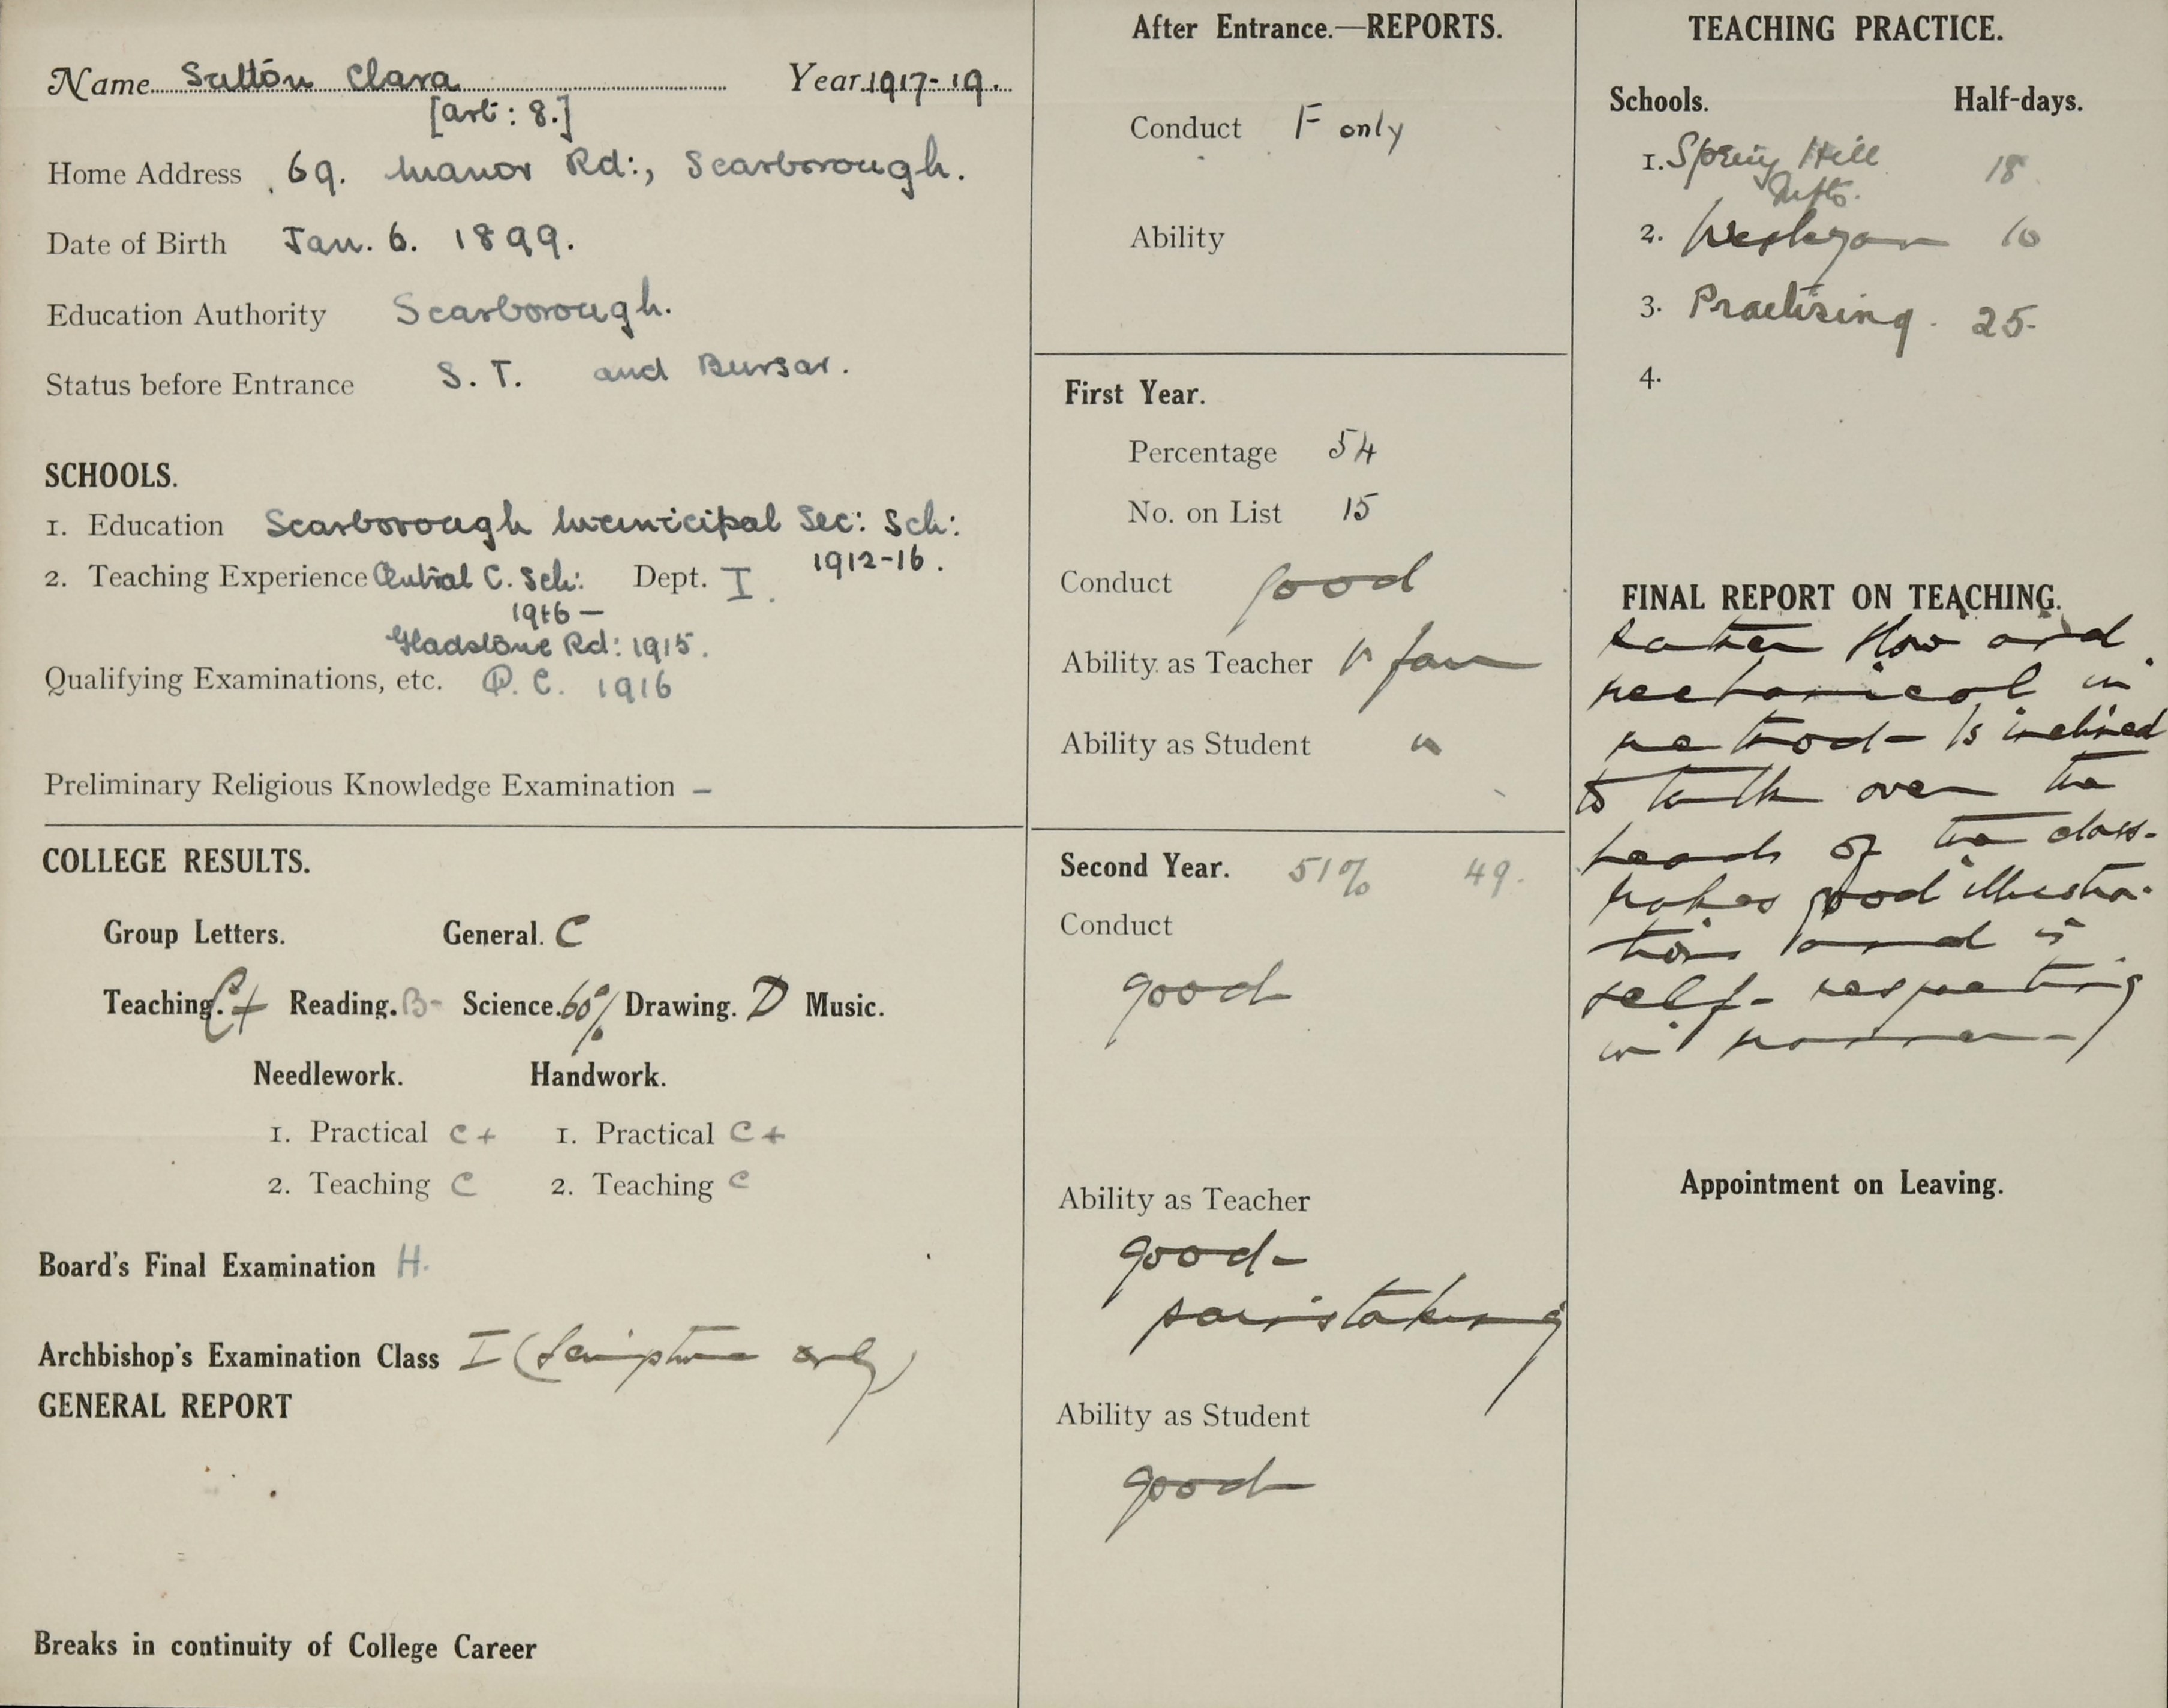 Name Sutton Clara Year 1917-19.
[art: 8.]
Home Address 69. Manor Rd:, Scarborough.
Date of Birth Jan. 6. 1899.
Education Authority Scarborough.
Status before Entrance S. T. and Bursar.
SCHOOLS.
1. Education Scarborough Municipal Sec: Sch:
1912-16.
2. Teaching Experience Central C. Sch: Dept. I.
1916 —
Gladstone Rd: 1915.
Qualifying Examinations, etc. P. C. 1916
Preliminary Religious Knowledge Examination –
COLLEGE RESULTS.
Group Letters. General. C
Teaching. C+ Reading. B- Science. 60% Drawing. D Music.
Needlework. Handwork.
1. Practical C+ 1. Practical C+
2. Teaching C 2. Teaching C
Board's Final Examination H.
Archbishop's Examination Class I (Scripture only)
GENERAL REPORT
Breaks in continuity of College Career
After Entrance.—REPORTS.
Conduct F only
Ability
First Year.
Percentage 54
No. on List 15
Conduct good
Ability as Teacher v fair
Ability as Student
Second Year. 51% 49.
Conduct
good
Ability as Teacher
good-
painstaking
Ability as Student
good
TEACHING PRACTICE.
Schools. Half-days.
1. Spring Hill 18
Infts.
2. Wesleyan 10
3. Practising. 25-
4.
FINAL REPORT ON TEACHING.
Rather slow and
mechanical in
method- Is inclined
to talk over the
heads of the class-
makes good illustra-
tions and is
self-respecting
in manner-
Appointment on Leaving.